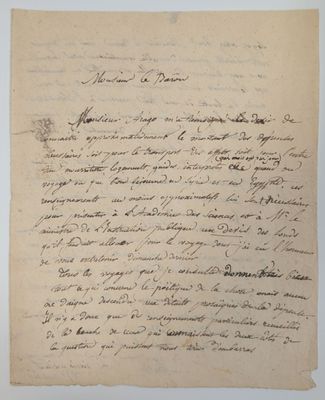 Monsieur le Baron
Monsieur Arago m'a témoigné le désir de
connaître approximativement le montant des dépenses
nécessaires soit pour le transport des effets soit pour
nourriture logement, guides, interprètes quand on
voyage ou que l'on séjourne en Syrie et en Égypte, ces
renseignements au moins approximatifs lui sont nécessaires
pour présenter à l'Académie des Sciences et à Mr le
ministre de l'Instruction publique un devis des fonds
qu'il faudrait allouer pour le voyage dont j'ai eu l'honneur
de vous entretenir dimanche dernier.
Tous les voyages que j'ai consultés
tout ce qui concerne le politique de la chose mais aucun
ne daigne descendre aux détails mesquins de la dépense.
Il n'y a donc que des renseignements particuliers recueillis
de la bouche de ceux qui connaissent les deux côtés de
la question qui puissent nous tirer d'embarras